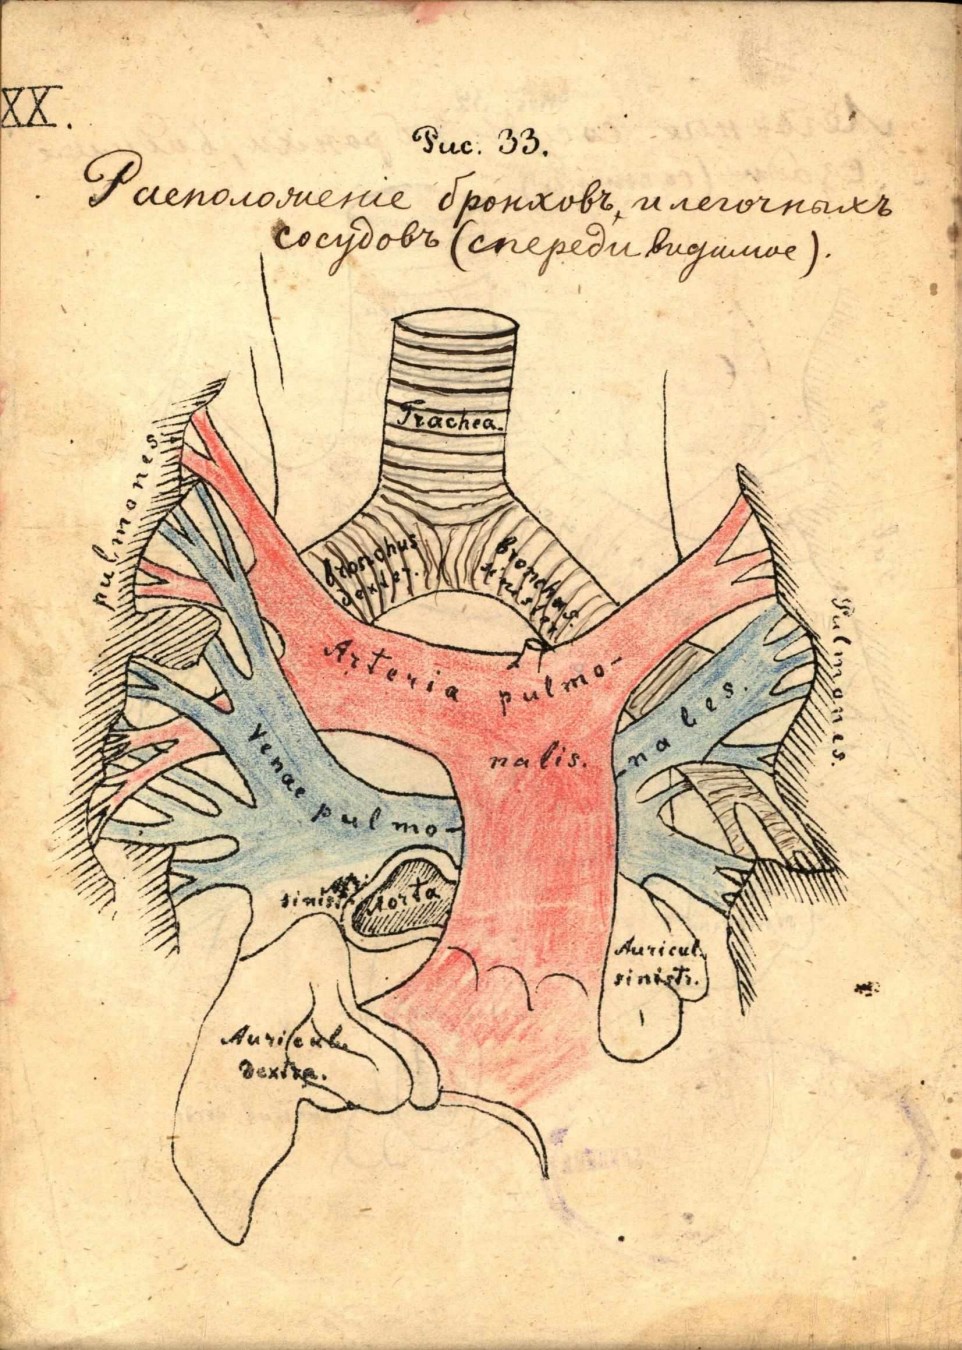 XX.
Рис. 33.
Расположеніе бронховъ, и легочныхъ
сосудовъ (спереди видимое).
Trachea.
pulmones
Bronchus
dexter.
Bronchus
sinister.
Arteria pulmo-
nalis.
Pulmones.
Venae pulmo-
-nales.
sinist.
Aorta
Auricul.
sinistr.
Auricul.
dextra.